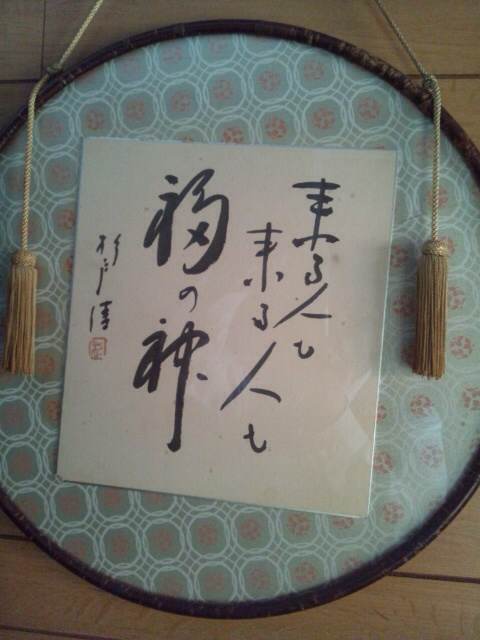 来る人も
来る人も
福の神
杉戸清